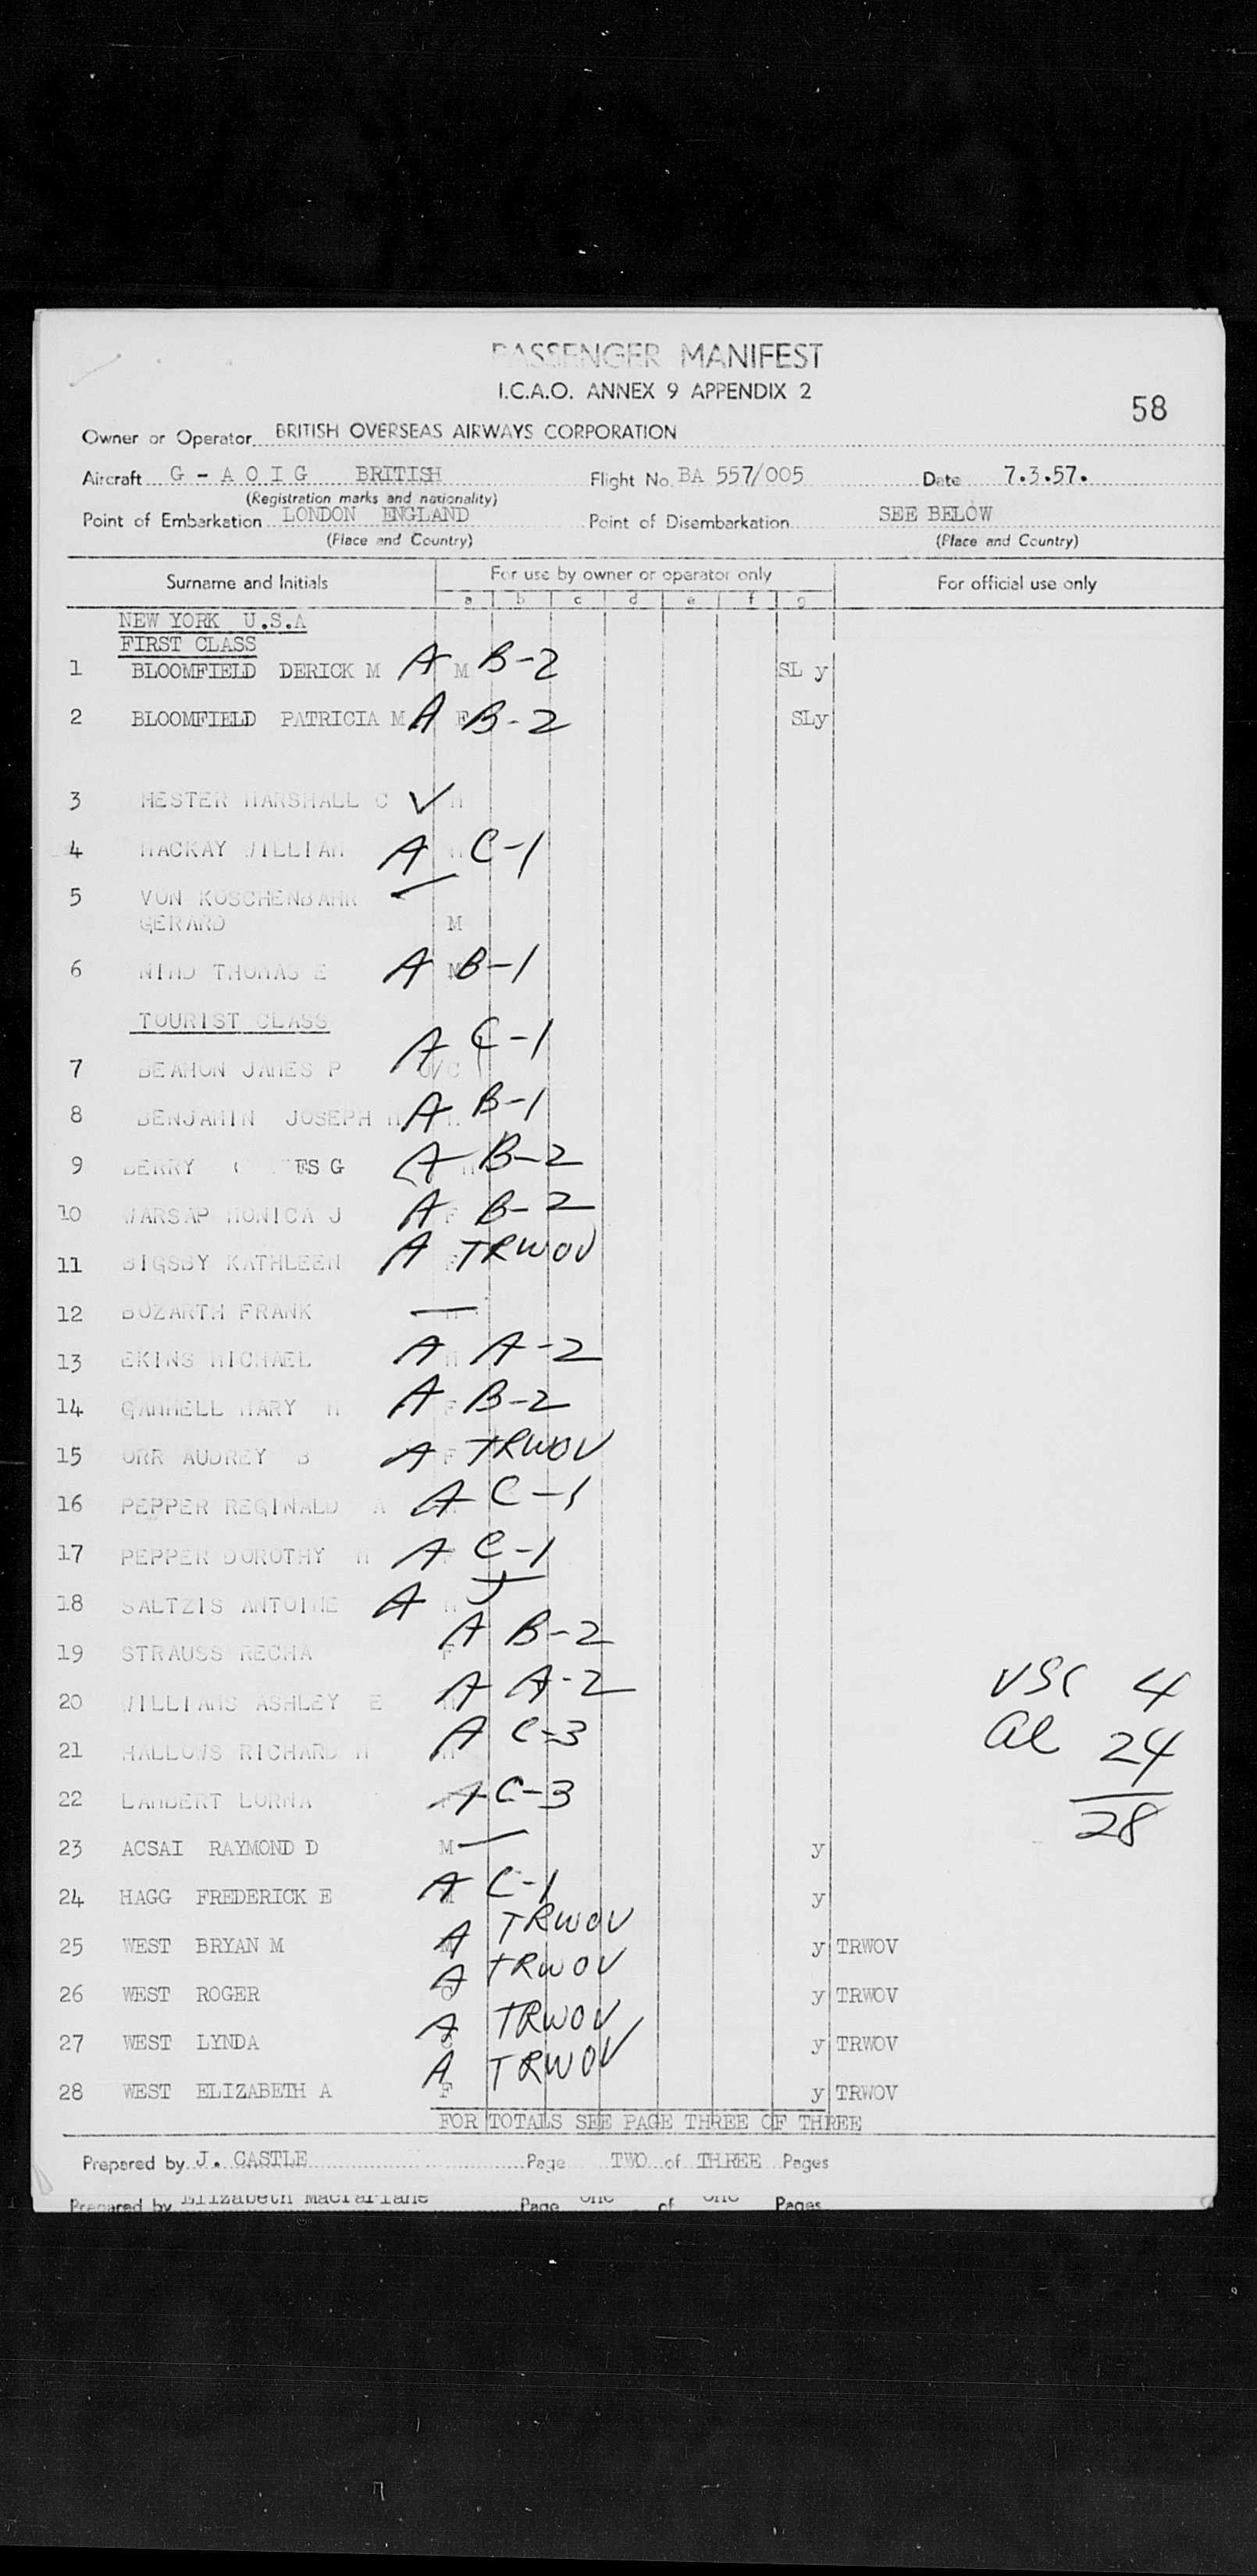 PASSENGER MANIFEST
I.C.A.O. ANNEX 9 APPENDIX 2
58
Owner or Operator BRITISH OVERSEAS AIRWAYS CORPORATION
Aircraft G - A O I G BRITISH Flight No. BA 557/005 Date 7.3.57.
(Registration marks and nationality)
Point of Embarkation LONDON ENGLAND Point of Disembarkation SEE BELOW
(Place and Country) (Place and Country)
Surname and Initials For use by owner or operator only For official use only
a b c d e f g
NEW YORK U.S.A
FIRST CLASS
1 BLOOMFIELD DERICK M A M B-2 SL y
2 BLOOMFIELD PATRICIA M A F B-2 SLy
3 HESTER MARSHALL C ✓ M
4 MACKAY WILLIAM A M C-1
5 VON KOSCHENBAHR —
GERARD M
6 NIMD THOMAS E A M B-1
TOURIST CLASS
7 BEAMON JAMES P U/C A C-1
8 BENJAMIN JOSEPH M A M B-1
9 BERRY ES G A M B-2
10 WARSAP MONICA J A F B-2
11 BIGSBY KATHLEEN A F TRWOV
12 BOZARTH FRANK — M
13 EKINS MICHAEL A M A-2
14 GAMMELL MARY M A F B-2
15 ORR AUDREY B A F TRWOV
16 PEPPER REGINALD A A C-1
17 PEPPER DOROTHY M A F C-1
18 SALTZIS ANTOINE A M J
19 STRAUSS RECHA A F B-2
20 WILLIAMS ASHLEY E A M A-2
21 HALLOWS RICHARD M A M C-3
22 LAMBERT LORNA A F C-3
23 ACSAI RAYMOND D M — y
24 HAGG FREDERICK E A M C-1 y
25 WEST BRYAN M A M TRWOV y TRWOV
26 WEST ROGER A C TRWOV y TRWOV
27 WEST LYNDA A C TRWOV y TRWOV
28 WEST ELIZABETH A A F TRWOV y TRWOV
VSC 4
al 24
28
FOR TOTALS SEE PAGE THREE OF THREE
Prepared by J. CASTLE Page TWO of THREE Pages
Prepared by Elizabeth Macfarlane Page one of one Pages